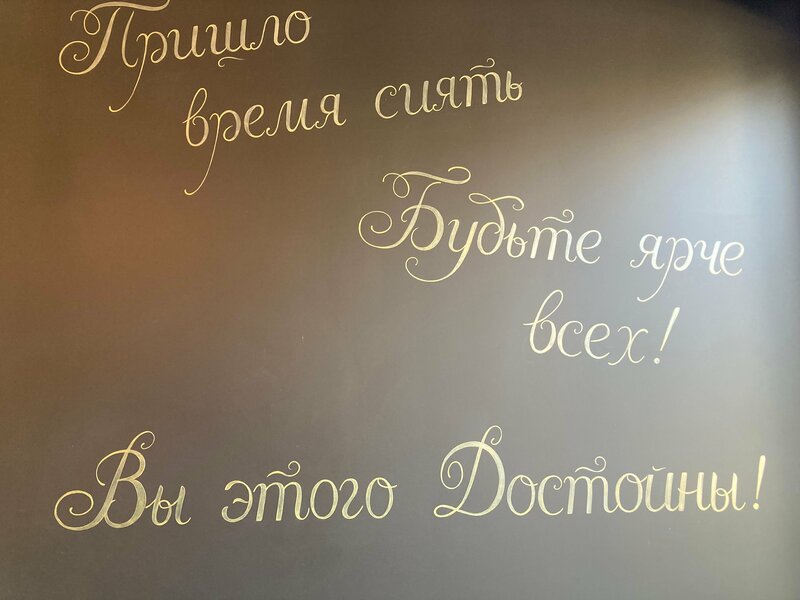 Пришло
время сиять
Будьте ярче
всех!
Вы этого Достойны!